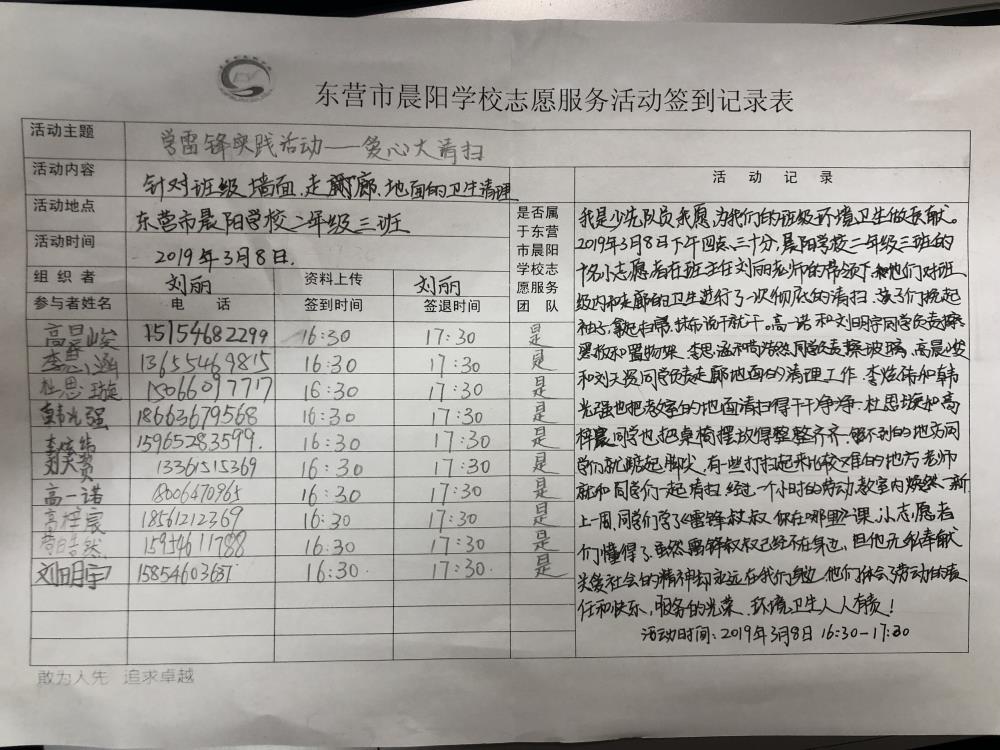 东营市晨阳学校志愿服务活动签到记录表
活动主题 学雷锋实践活动——爱心大清扫
活动内容 针对班级墙面、走廊、地面的卫生清理
活动地点 东营市晨阳学校二年级三班
活动时间 2019年3月8日.
组织者 刘丽 资料上传 刘丽
参与者姓名 电话 签到时间 签退时间
是否属
于东营
市晨阳
学校志
愿服务
团队
高晨峻 15154682299 16:30 17:30 是
李思涵 13655469815 16:30 17:30 是
杜思璇 15066097717 16:30 17:30 是
韩光强 18663679568 16:30 17:30 是
李炫伟 15965283599. 16:30 17:30 是
刘天赟 13361515369 16:30 17:30 是
高一诺 18006470965 16:30 17:30 是
高梓宸 18561212369 16:30 17:30 是
浩然 15954611788 16:30 17:30 是
刘明宇 15854603637 16:30. 17:30. 是
活动记录
我是少先队员我愿为我们的班级环境卫生做贡献。
2019年3月8日下午四点三十分,晨阳学校二年级三班的
十名小志愿者在班主任刘丽老师的带领下,他们对班
级内和走廊的卫生进行了一次彻底的清扫.孩子们挽起
袖子,拿起扫帚、抹布说干就干。高一诺和刘明宇同学负责擦
黑板和置物架.李思涵和浩然同学负责擦玻璃,高晨峻
和刘天赟同学负责走廊地面的清理工作.李炫伟和韩
光强也把教室的地面清扫得干干净净.杜思璇和高
梓宸同学也把桌椅摆放得整整齐齐.够不到的地方同
学们就踮起脚尖,有一些打扫起来比较难的地方老师
就和同学们一起清扫.经过一个小时的劳动,教室内焕然一新.
上一周,同学们学了《雷锋叔叔你在哪里》一课,小志愿者
们懂得了,虽然雷锋叔叔已经不在身边,但他无私奉献
关爱社会的精神却永远在我们身边.他们体会了劳动的责
任和快乐,服务的光荣.环境卫生人人有责!
活动时间:2019年3月8日 16:30-17:30
敢为人先 追求卓越